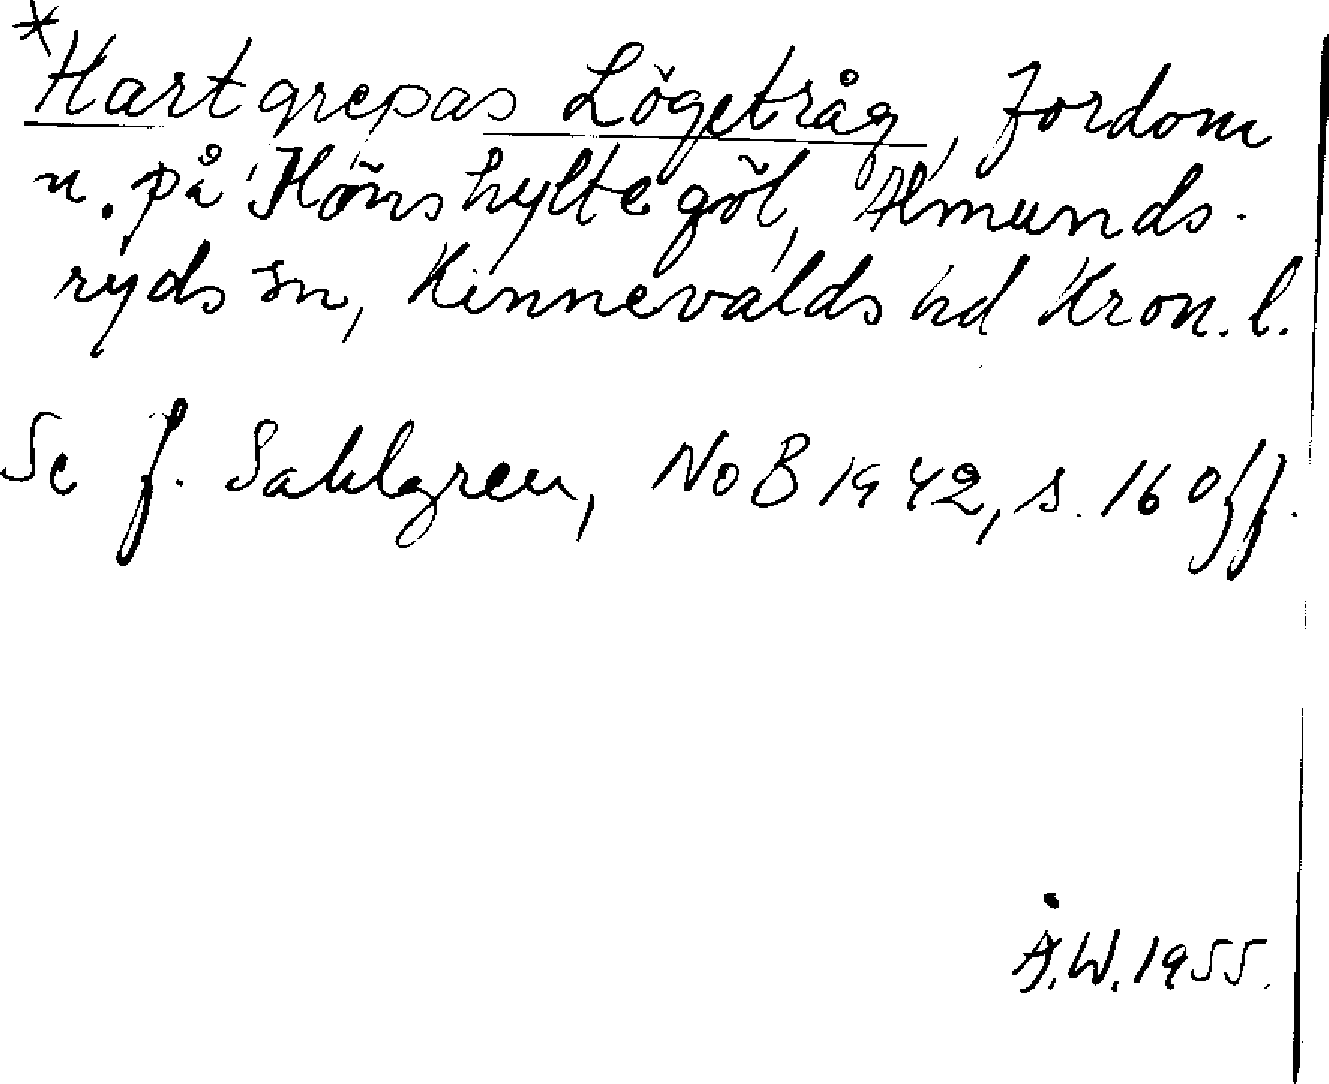 *Hartgrepas Lögetråg, fordom
n. på Hönshyltegöl, Almunds-
ryds sn, Kinnevalds hd Kron. l.
Se J. Sahlgren, NoB 1942, s. 160 ff.
Å.W. 1955.